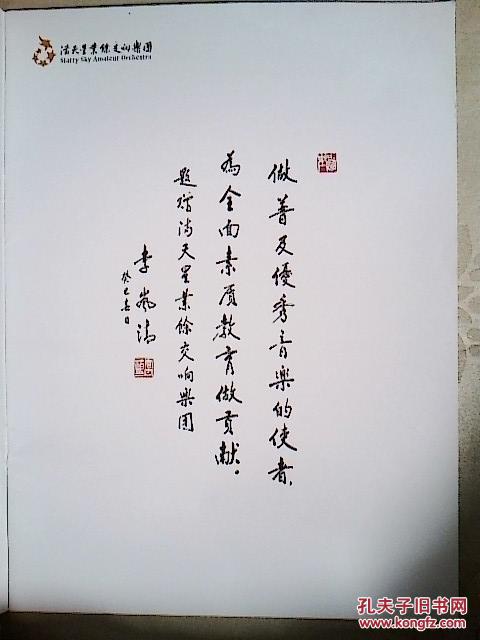 满天星業餘交响樂團
Starry Sky Amateur Orchestra
做普及優秀音樂的使者、
為全面素质教育做贡献。
题赠满天星業餘交响樂團
李岚清
癸巳春日
孔夫子旧书网
www.kongfz.com